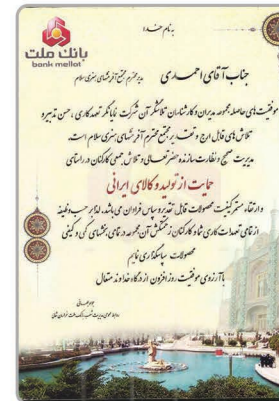 به نام خدا
بانك ملت
bank mellat
جناب آقای احمدی
مدیر محترم مجتمع آفرینشهای هنری سلام
موفقیت های حاصله مجموعه مدیران و کارشناسان تلاشگر آن شرکت نمایانگر تعهد کاری، حسن تدبیر و
تلاش های قابل ارج و تقدیر مجتمع محترم آفرینشهای هنری سلام است.
مدیریت صحیح و نظارت سازنده حضرتعالی و تلاش جمعی کارکنان در راستای
حمایت از تولید و کالای ایرانی
و ارتقاء مستمر کیفیت محصولات قابل تقدیر و سپاس فراوان می باشد. لذا بر حسب وظیفه
از تمامی تعهدات کاری شما و کارکنان زحمتکش آن مجموعه در تمامی بخشهای کمی و کیفی
محصولات سپاسگزاری نمایم
با آرزوی موفقیت روزافزون از درگاه خداوند متعال